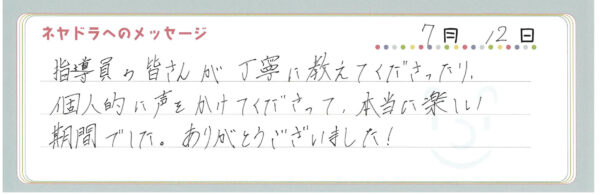 ネヤドラへのメッセージ
7月 12日
指導員の皆さんが丁寧に教えてくださったり、
個人的に声をかけてくださって、本当に楽しい
期間でした。ありがとうございました!